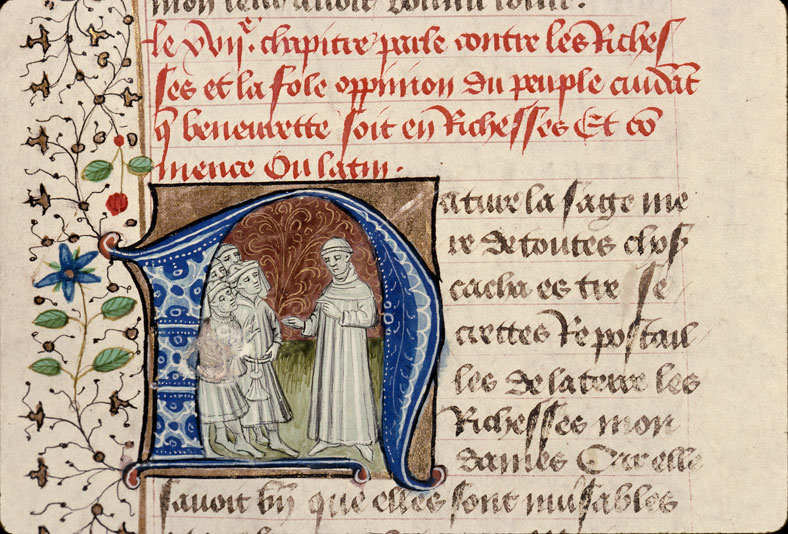 mon
le xviie. chapitre parle contre les Riches
ses et la fole oppinion du peuple cuidāt
q̄ beneurette soit en Richesses Et cō
mence Ou latin.
Nature la sage me
re de toutes chos
cacha es tre se
crettes Repostail
les de la terre les
Richesses mon
daines Car elle
savoit bn̄ que elles sont muſables